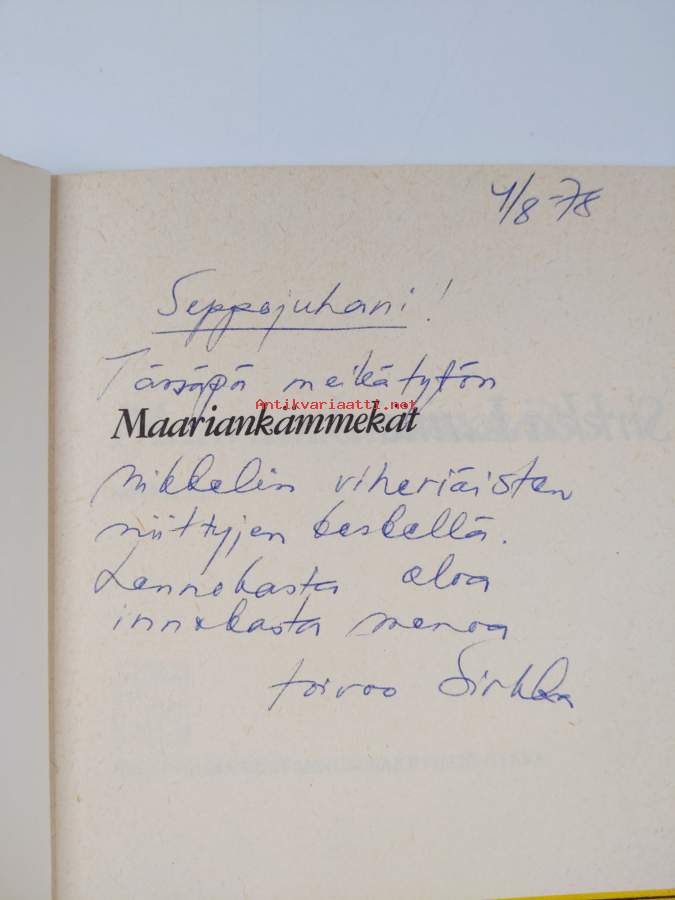 4/8-78
Seppojuhani!
Tässäpä meikätytön
Antikvariaatti.net
Maariankammekat
Mikkelin viheriäisten
niittyjen keskellä.
Lennokasta eloa
innokasta menoa
toivoo Sirkka